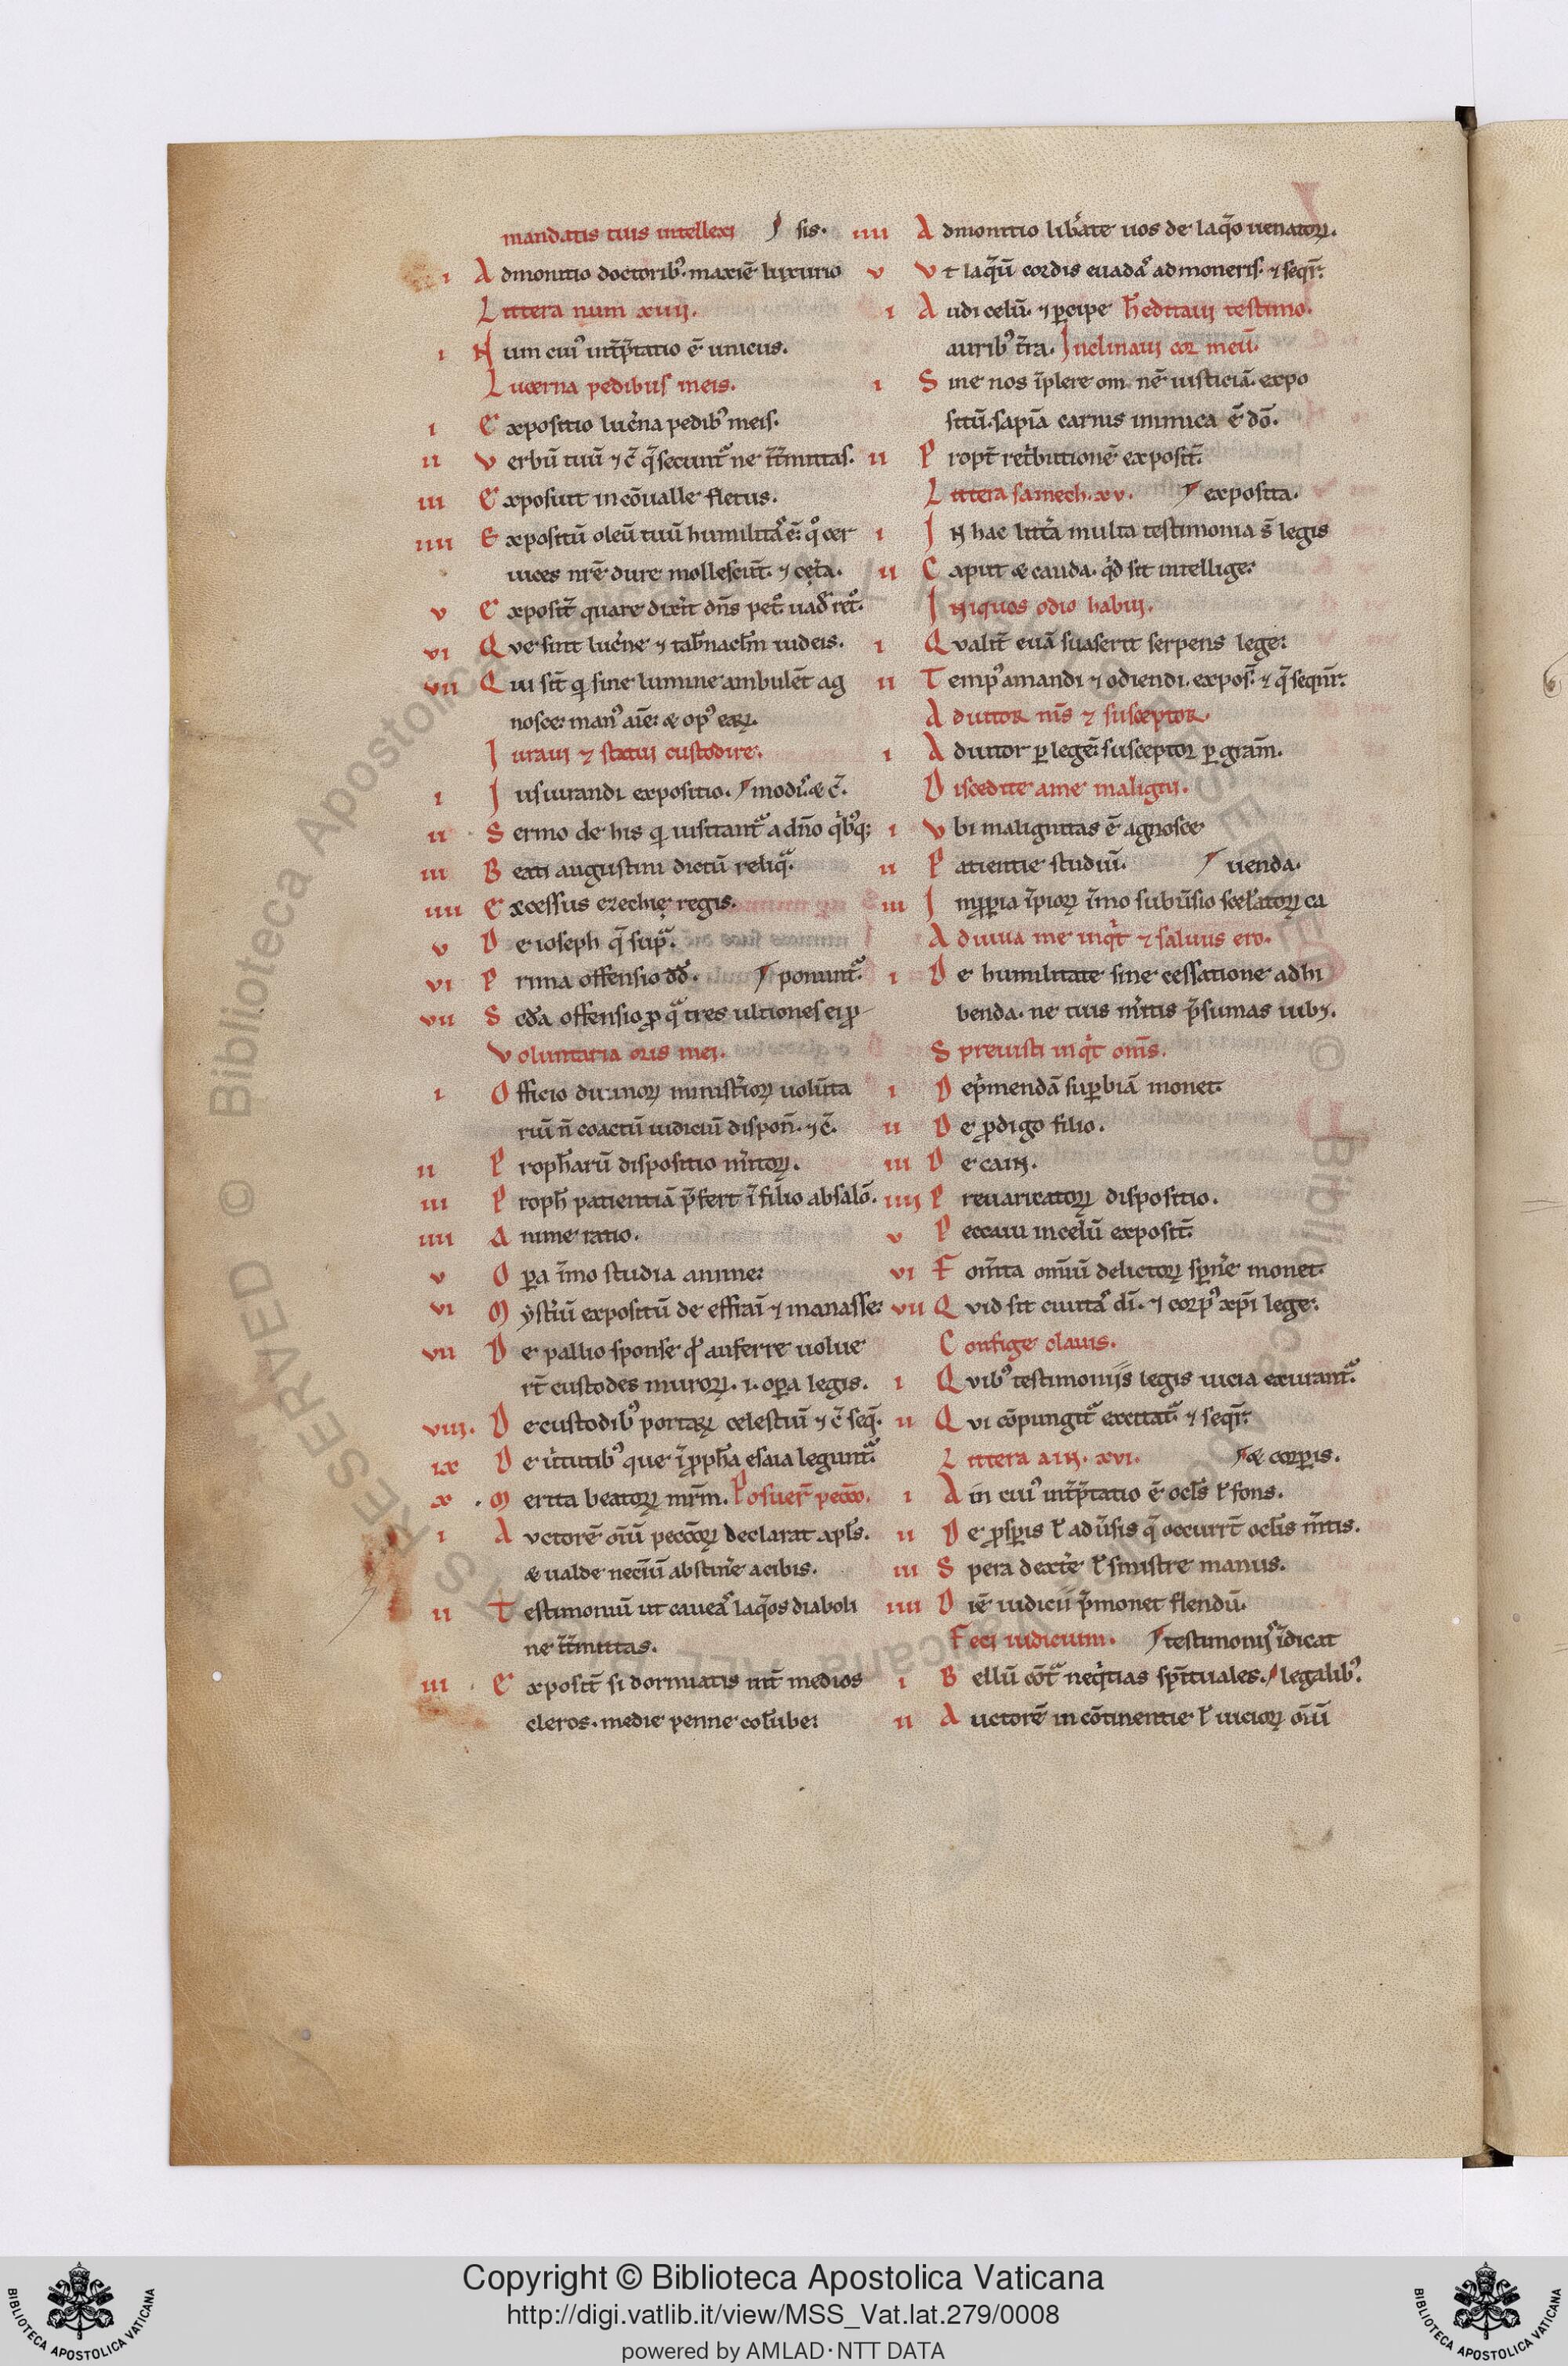 mandatis tuis intellexi sis.
i Admonitio doctorib᷒. maxiē luxurio
Littera num xiiij.
i Num cui᷒ int̄p̄tatio ē unicus.
Lucerna pedibus meis.
i Expositio luc̄na pedib᷒ meis.
ii Verbū tuū ⁊ c̄ q̄ secunt᷒ ne t̄t̄mittas.
iii Exposuit in cōualle fletus.
iiii Expositū oleū tuū humilitas ē. qͦ cer
uices nr̄e dure mollescūt. ⁊ cet̄a.
v Exposit̄ quare dix̄it dn̄s pet᷒ uad̄ ret᷒.
vi Que sint luc̄ne ⁊ tab̄nacl̄m iudeis.
vii Qui sīt qi sine lumine ambulēt ag
nosce. man᷒ aīe. & op᷒ eaꝝ.
Iuraui ⁊ statui custodire.
i Iusiurandi expositio. modi. & c̄.
ii Sermo de his qi uisitant᷒ a dn̄o qib᷒q;
iii Beati augustini dictū reliq̄.
iiii Excessus ezechię regis.
v De ioseph q̄ sup̄.
vi Prima offensio dd̄. ponunt᷒
vii Scd̄a offensio ꝓ qͣ tres ultiones ei ꝓ
Voluntaria oris mei.
i Officio diuinoꝝ minist̄ioꝝ uolūta
riū n̄ coactū iudiciū dispon̄. ⁊ c̄.
ii Proph̄arū dispositio m̄itoꝝ.
iii Proph̄ patientiā p̄fert ī filio absalō.
iiii Anime ratio.
v Oꝑa īmo studia anime.
vi Myst̄iū expositū de effraī ⁊ manasse.
vii De pallio sponse qd̄ auferre uolue
rt̄ custodes muroꝝ. i. oꝑa legis.
viii. De custodib᷒ portaꝝ celestiū ⁊ c̄ seq̄.
ix De ūtutib᷒ que ī ꝓph̄a esaia legunt᷒
x Merita beatoꝝ mr̄m. Posuer̄ pecc̄o.
i Auctorē oīū pecc̄oꝝ declarat apl̄s.
& ualde nec̄iū abstin̄e a cibis.
ii Testimoniū ut caueas laq̄os diaboli
ne t̄t̄mittas.
iii Exposit̄ si dormiatis int̄ medios
cleros. medie penne colūbe.
iiii Admonitio lib̄ate uos de laq̄o uenatoꝝ.
v Vt laq̄ū cordis euadas admoneris. ⁊ seqr̄.
i Audi celū. ⁊ ꝑcipe h̄editaui testimo.
aurib᷒ t̄ra. Inclinaui cor meū.
i Sine nos īplere omnē iusticiā. expo
sitū. sapīa carnis inimica ē dō.
ii Propt̄ ret̄butionē exposit̄.
Littera samech. xv. exposita.
i In hac litt̄a multa testimonia s̄ legis
ii Caput & cauda. qd̄ sit intellige.
Iniquos odio habui.
i Qualit̄ euā suaserit serpens lege.
ii Temp᷒ amandi ⁊ odiendi. expos̄. ⁊ q̄ sequnr̄.
Adiutor m̄s ⁊ susceptor.
i Adiutor ꝑ legē. susceptor ꝑ grām.
Discedite a me maligni.
i Vbi malignitas ē agnosce
ii Patientie studiū. uenda.
iii Inꝓꝑia īpioꝝ īmo subūsio scel̄atoꝝ ca
Adiuua me inqͥt ⁊ saluus ero.
i De humilitate sine cessatione adhi
benda. ne tuis m̄itis p̄sumas iubꝫ.
Spreuisti inqͥt om̄s.
i Dep̄mendā suꝑbiā monet
ii De ꝓdigo filio.
iii De cain.
iiii Preuaricatoꝝ dispositio.
v Peccaui in celū exposit̄
vi Fomīta omīū delictoꝝ sꝑn̄e monet.
vii Quid sit ciuitas dī. ⁊ corp᷒ xp̄i lege.
Confige clauis.
i Quib᷒ testimoniis legis uicia exurant᷒.
ii Qui cōpungit᷒ excitat᷒. ⁊ seqr̄.
Littera ain. xvi. & corꝑis.
i Ain cui᷒ int̄p̄tatio ē ocl̄s ł fons.
ii De ꝓsꝑis ł adūsis q̄ occurrt̄ ocl̄is m̄tis.
iii Spera dext̄e ł sinistre manus.
iiii Diē iudicii p̄monet flendū.
Feci iudicium. testimoniis īdicat
i Bellū cōt̄ neqͥtias sp̄ituales. legalib᷒.
ii Auctorē in cōtinentie ł uicioꝝ oīū
Copyright © Biblioteca Apostolica Vaticana
http://digi.vatlib.it/view/MSS_Vat.lat.279/0008
powered by AMLAD·NTT DATA